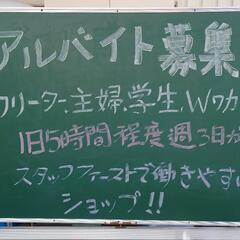 アルバイト募集
フリーター.主婦.学生.Wワカ
1日5時間程度週3日か
スタッフファーストで働きやすい
ショップ!!